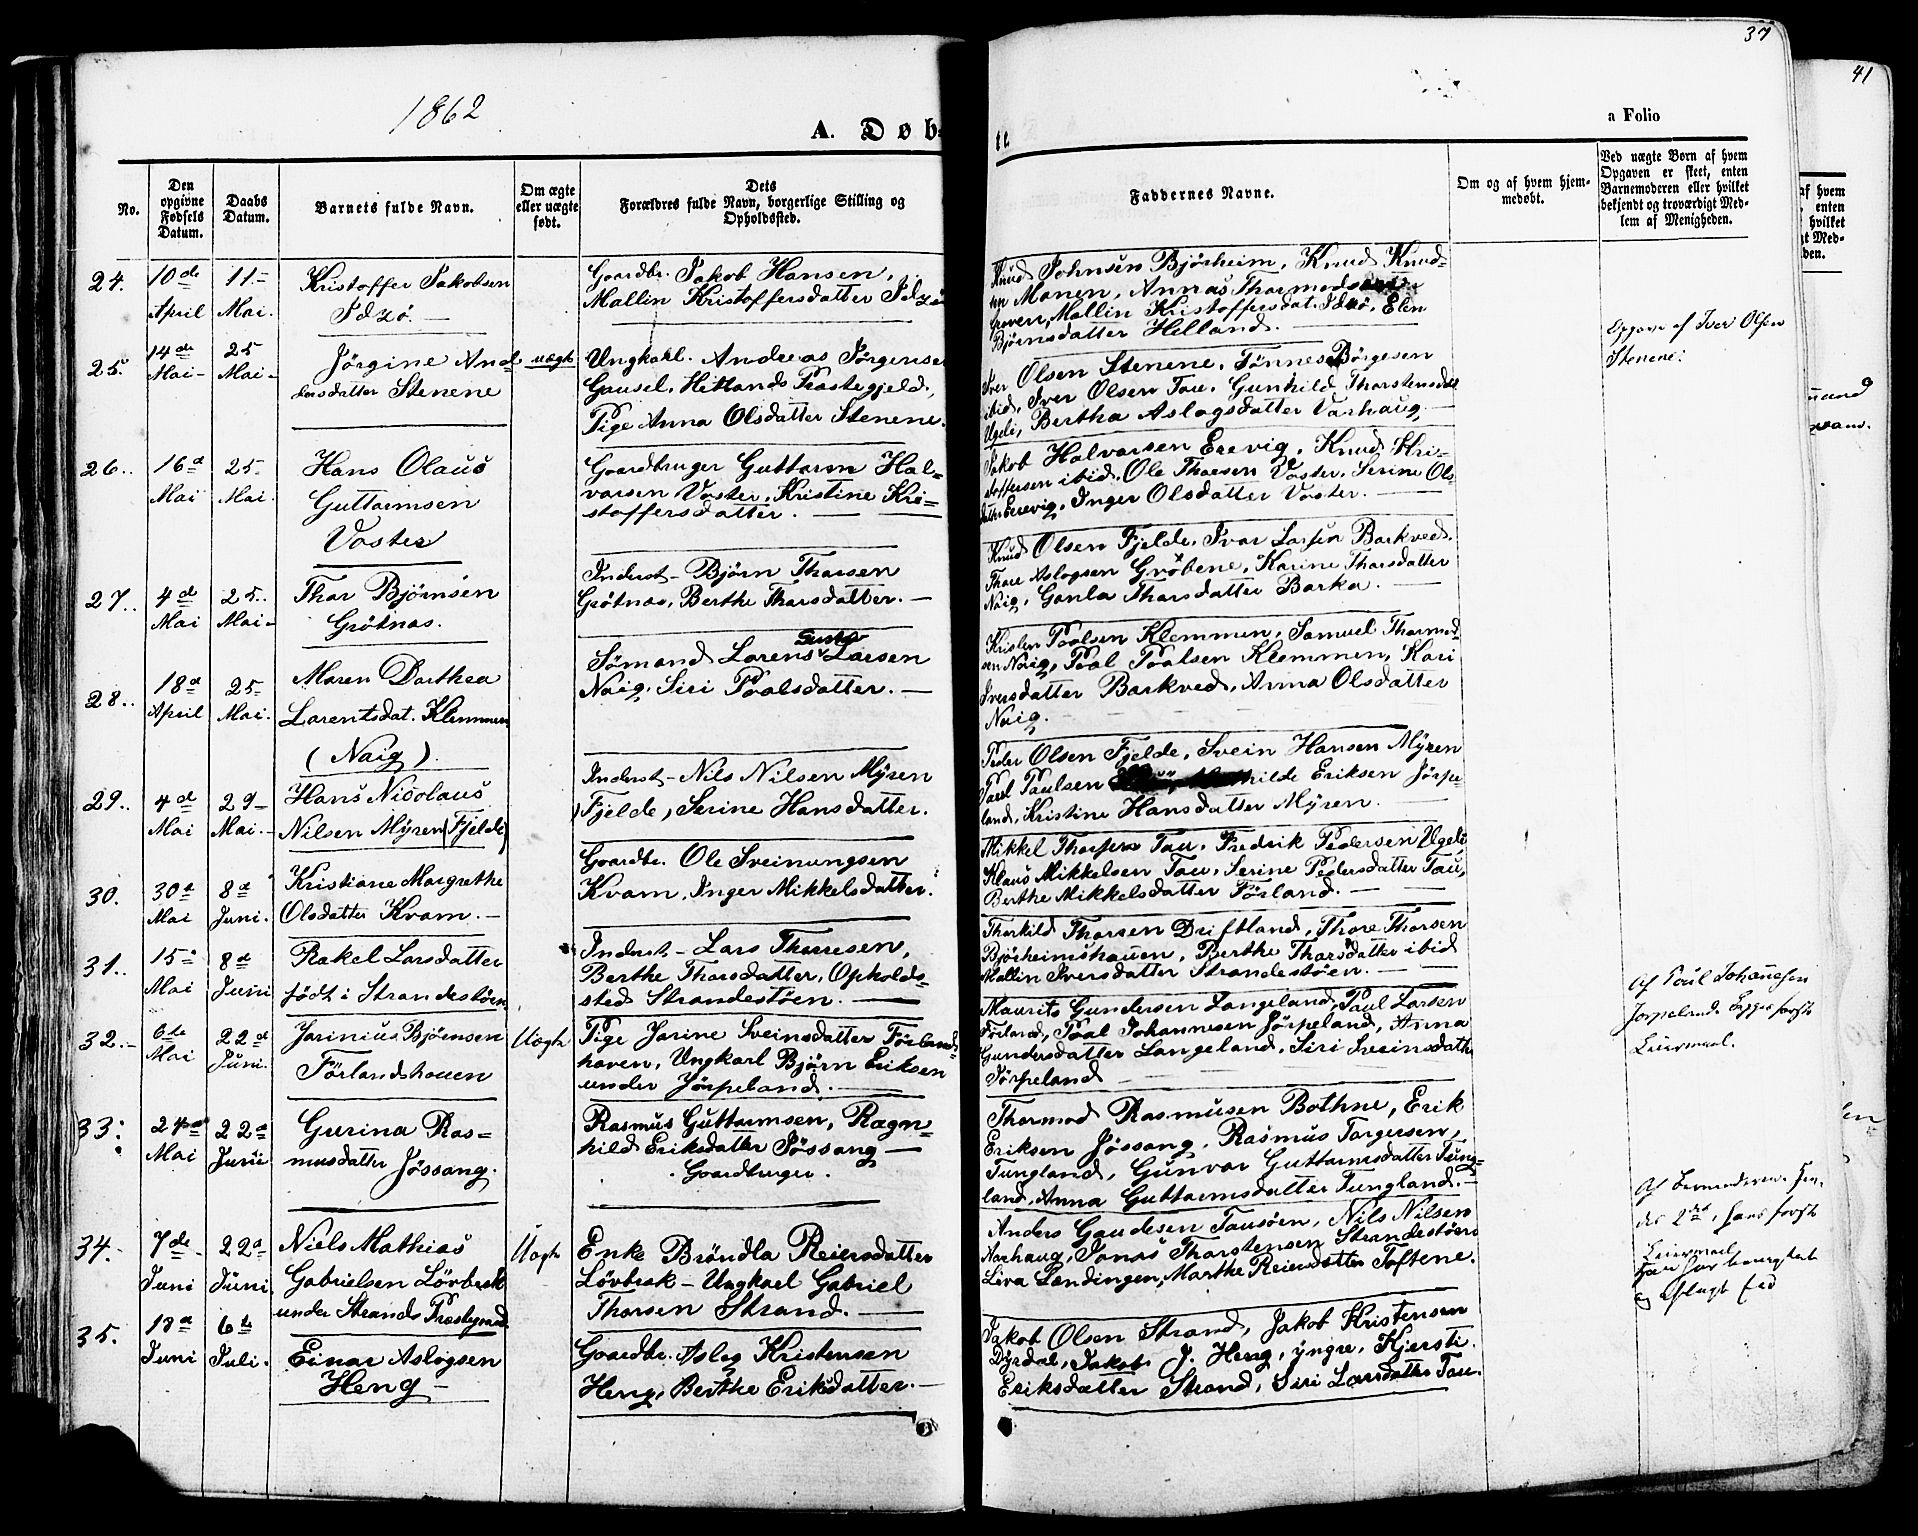 1862
A. Døb-
te.
37
41
a Folio
No.
Den
opgivne
Fødsels
Datum.
Daabs
Datum.
Barnets fulde Navn.
Om ægte
eller uægte
født.
Dets
Forældres fulde Navn, borgerlige Stilling og
Opholdssted.
Faddernes Navne.
Om og af hvem hjem-
medøbt.
Ved uægte Børn af hvem
Opgaven er skeet, enten
Barnemoderen eller hvilket
bekjendt og troværdigt Med-
lem af Menigheden.
24. 10de
April
11-
Mai.
Kristoffer Jakobsen
Idsö.
Gaardbr. Jakob Hansen,
Mallin Kristoffersdatter Idsö
Knud Johnsen Bjørheim, Knud Knud-
sen Manen, Anna Thormods
Mallin Kristoffersdat. Idsö, Elen
Bjørnsdatter Helland.
25. 14de
Mai-
25
Mai-
Jörgine And-
ersdatter Stenene
uægte
Ungkarl. Andreas Jørgensen
Gausel, Hetlands Præstegjeld,
Pige Anna Olsdatter Stenene.
Iver Olsen Stenene, Tønnes Børgesen
ibid, Iver Olsen Tau, Gunhild Thorstensdat
Ugeli, Bertha Aslagsdatter Varhaug.
Opgave af Iver Olsen
Stenene.
26. 16d
Mai
25-
Mai
Hans Olaus
Guttormsen
Voster
Gaardbruger Guttorm Hal-
varsen Voster, Kristine Kri-
stoffersdatter.
Jakob Halvorsen Erevig, Knud Kri-
stoffersen ibid, Ole Thorsen Voster, Serine Ols-
datter Erevig, Inger Olsdatter Voster.
27. 4d
Mai
25.
Mai-
Thor Bjørnsen
Grötnas.
Inderst- Bjørn Thorsen
Grötnas, Berthe Thorsdatter.
Knud Olsen Fjelde, Ivar Larsen Barkved,
Thore Aslogsen Gröbene, Karine Thorsdatter
Naig, Gonla Thorsdatter Barka.
28. 18d
April
25-
Mai.
Maren Dorthea
Lorentsdat. Klemmen
(Naig).
Sømand Lorens Larsen
Naig, Siri Poalsdatter.
Kristen Poalsen Klemmen, Samuel Thormod-
sen Naig, Poal Poalsen Klemmen, Kari
Iversdatter Barkved, Anna Olsdatter
Naig.
29. 4d
Mai
29-
Mai.-
Hans Nicolaus
Nilsen Mÿren (Fjelde)
Inderst- Nils Nilsen Mÿren
Fjelde, Serine Hansdatter.
Peder Olsen Fjelde, Svein Hansen Mÿren
Paul Paulsen hilde Eriksen Jörpe-
land, Kristine Hansdatter Mÿren.
30. 30d
Mai
8d
Juni.
Kristiane Margrethe
Olsdatter Kvam.
Gaardbr. Ole Sveinungsen
Kvam, Inger Mikkelsdatter.
Mikkel Thorsen Tau, Fredrik Pedersen Ugeli,
Klaus Mikkelsen Tau, Serine Pedersdatter Tau,
Berthe Mikkelsdatter Förland.
31. 15
Mai
8d
Juni
Rakel Larsdatter
født i Strandestöen
Inderst- Lars Thoresen,
Berthe Thorsdatter, Opholds-
sted Strandestöen.
Thorkild Thorsen Driftland, Thore Thorsen
Bjørheimshauen, Berthe Thorsdatter ibid
Mallin Iversdatter Strandestöen.
32. 6te
Mai
22d
Juni.
Jorinius Bjørnsen
Förlandshauen
Uægte
Pige Jorine Sveinsdatter Förlands-
haven, Ungkarl Bjørn Eriksen
under Jörpeland.
Maurits Gundersen Langeland, Paul Larsen
Förland, Poal Johannesen Jörpeland, Anna
Gundersdatter Langeland, Siri Sveinsdatter
Jörpeland
Af Paul Johannesen
Jørpeland. Begges første
Leiermaal.
33. 24de
Mai
22d
Juni
Gurina Ras-
musdatter Jössang.
Rasmus Guttormsen, Ragn-
hild Eriksdatter Jössang
Gaardbruger.
Thormod Rasmusen Bothne, Erik
Eriksen Jössang, Rasmus Torgersen,
Tungland, Gunvor Guttormsdatter Tung-
land, Anna Guttormsdatter Tungland.
34. 7de
Juni
22d
Juni
Niels Mathias
Gabrielsen Lövbrek
under Strands Præstegaard
Uægte
Enke Bröndla Reiersdatter
Lövbrek - Ungkarl Gabriel
Thorsen Strand.
Anders Gaudesen Tausöen, Nils Nilsen
Varhaug, Jonas Thorstensen Strandestöen
Siva Lendingen, Marthe Reiersdatter Toftene.
Af Barnemoderen.
des 2det, hans første
Leiermaal.
35. 18d
Juni
6te
Juli.
Einar Aslogsen
Heng
Gaardbr. Aslog Kristensen
Heng, Berthe Eriksdatter.
Jakob Olsen Strand, Jakob Kristensen
Dÿrdal, Jakob J. Heng, yngre, Kjersti
Eriksdatter Strand, Siri Larsdatter Tau.